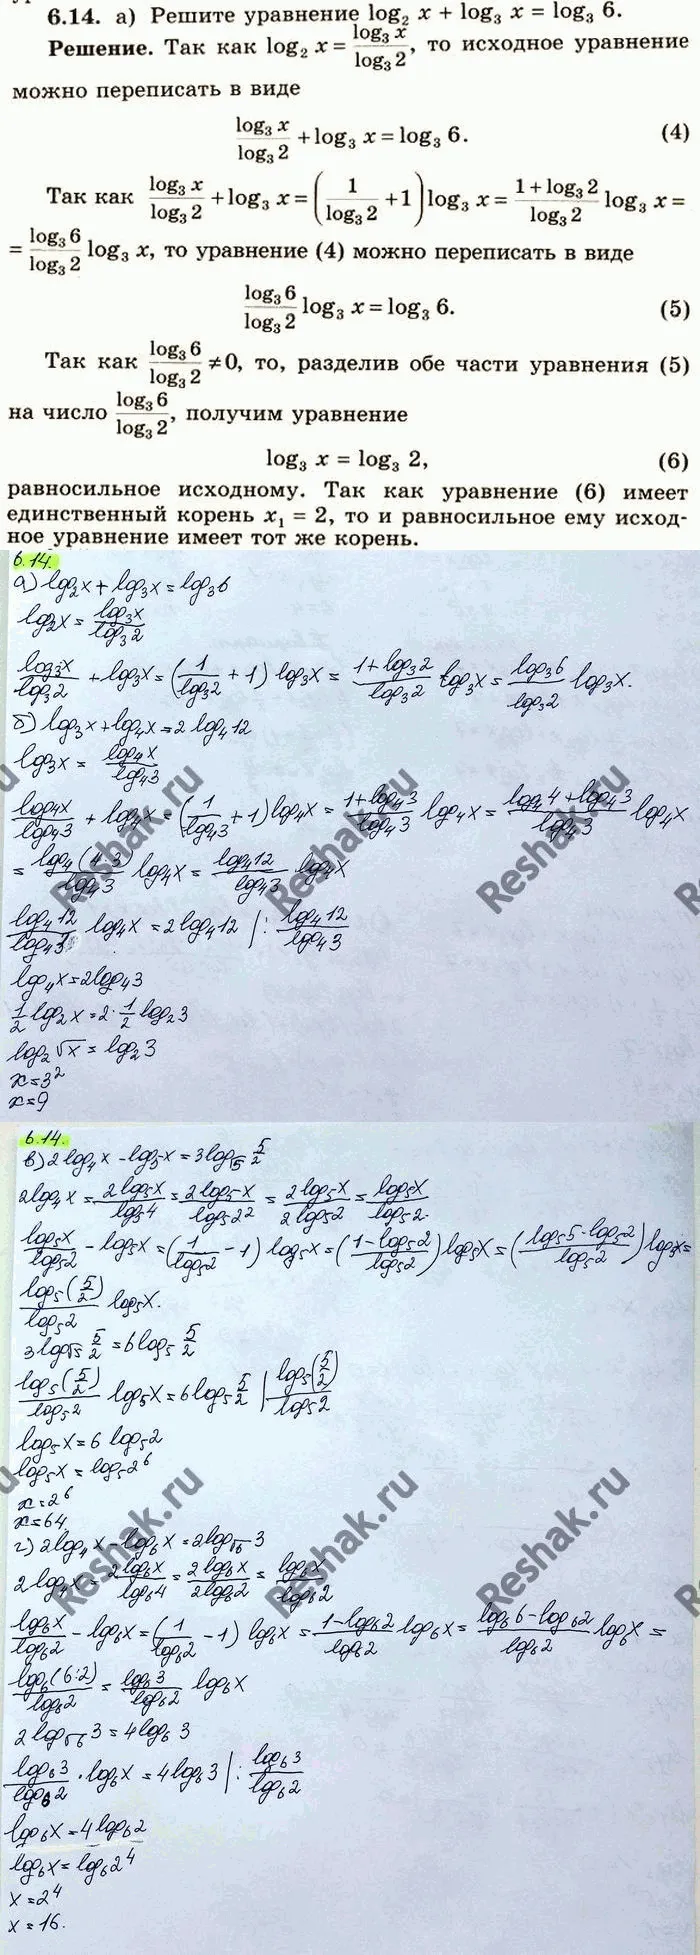 6.14. а) Решите уравнение log₂ x + log₃ x = log₃ 6.
Решение. Так как log₂ x = log₃ x / log₃ 2, то исходное уравнение
можно переписать в виде
log₃ x / log₃ 2 + log₃ x = log₃ 6. (4)
Так как log₃ x / log₃ 2 + log₃ x = (1 / log₃ 2 + 1) log₃ x = (1 + log₃ 2) / log₃ 2 log₃ x =
= log₃ 6 / log₃ 2 log₃ x, то уравнение (4) можно переписать в виде
log₃ 6 / log₃ 2 log₃ x = log₃ 6. (5)
Так как log₃ 6 / log₃ 2 ≠ 0, то, разделив обе части уравнения (5)
на число log₃ 6 / log₃ 2, получим уравнение
log₃ x = log₃ 2, (6)
равносильное исходному. Так как уравнение (6) имеет
единственный корень x₁ = 2, то и равносильное ему исход-
ное уравнение имеет тот же корень.
6.14.
а) log₂x + log₃x = log₃6
log₂x = log₃x / log₃2
log₃x / log₃2 + log₃x = (1 / log₃2 + 1) log₃x = (1 + log₃2) / log₃2 log₃x = log₃6 / log₃2 log₃x.
б) log₃x + log₄x = 2 log₄12
log₃x = log₄x / log₄3
log₄x / log₄3 + log₄x = (1 / log₄3 + 1) log₄x = (1 + log₄3) / log₄3 log₄x = (log₄4 + log₄3) / log₄3 log₄x
= log₄(4·3) / log₄3 log₄x = log₄12 / log₄3 log₄x
log₄12 / log₄3 log₄x = 2 log₄12 | : log₄12 / log₄3
log₄x = 2log₄3
1/2 log₂x = 2 · 1/2 log₂3
log₂√x = log₂3
x = 3²
x = 9
Reshak.ru
Reshak.ru
Reshak.ru
6.14.
в) 2 log₄x - log₅x = 3 log√5 5/2
2 log₄x = 2 log₅x / log₅4 = 2 log₅x / log₅2² = 2 log₅x / 2 log₅2 = log₅x / log₅2.
log₅x / log₅2 - log₅x = (1 / log₅2 - 1) log₅x = ((1 - log₅2) / log₅2) log₅x = ((log₅5 - log₅2) / log₅2) log₅x =
log₅(5/2) / log₅2 log₅x.
3 log√5 5/2 = 6 log₅ 5/2
log₅(5/2) / log₅2 log₅x = 6 log₅ 5/2 | log₅(5/2) / log₅2
log₅x = 6 log₅2
log₅x = log₅2⁶
x = 2⁶
x = 64
г) 2 log₄x - log₆x = 2 log√6 3
2 log₄x = 2 log₆x / log₆4 = 2 log₆x / 2 log₆2 = log₆x / log₆2
log₆x / log₆2 - log₆x = (1 / log₆2 - 1) log₆x = (1 - log₆2) / log₆2 log₆x = (log₆6 - log₆2) / log₆2 log₆x =
log₆(6:2) / log₆2 = log₆3 / log₆2 log₆x
2 log√6 3 = 4 log₆ 3
log₆3 / log₆2 · log₆x = 4 log₆3 | : log₆3 / log₆2
log₆x = 4 log₆2
log₆x = log₆2⁴
x = 2⁴
x = 16.
Reshak.ru
Reshak.ru
Reshak.ru